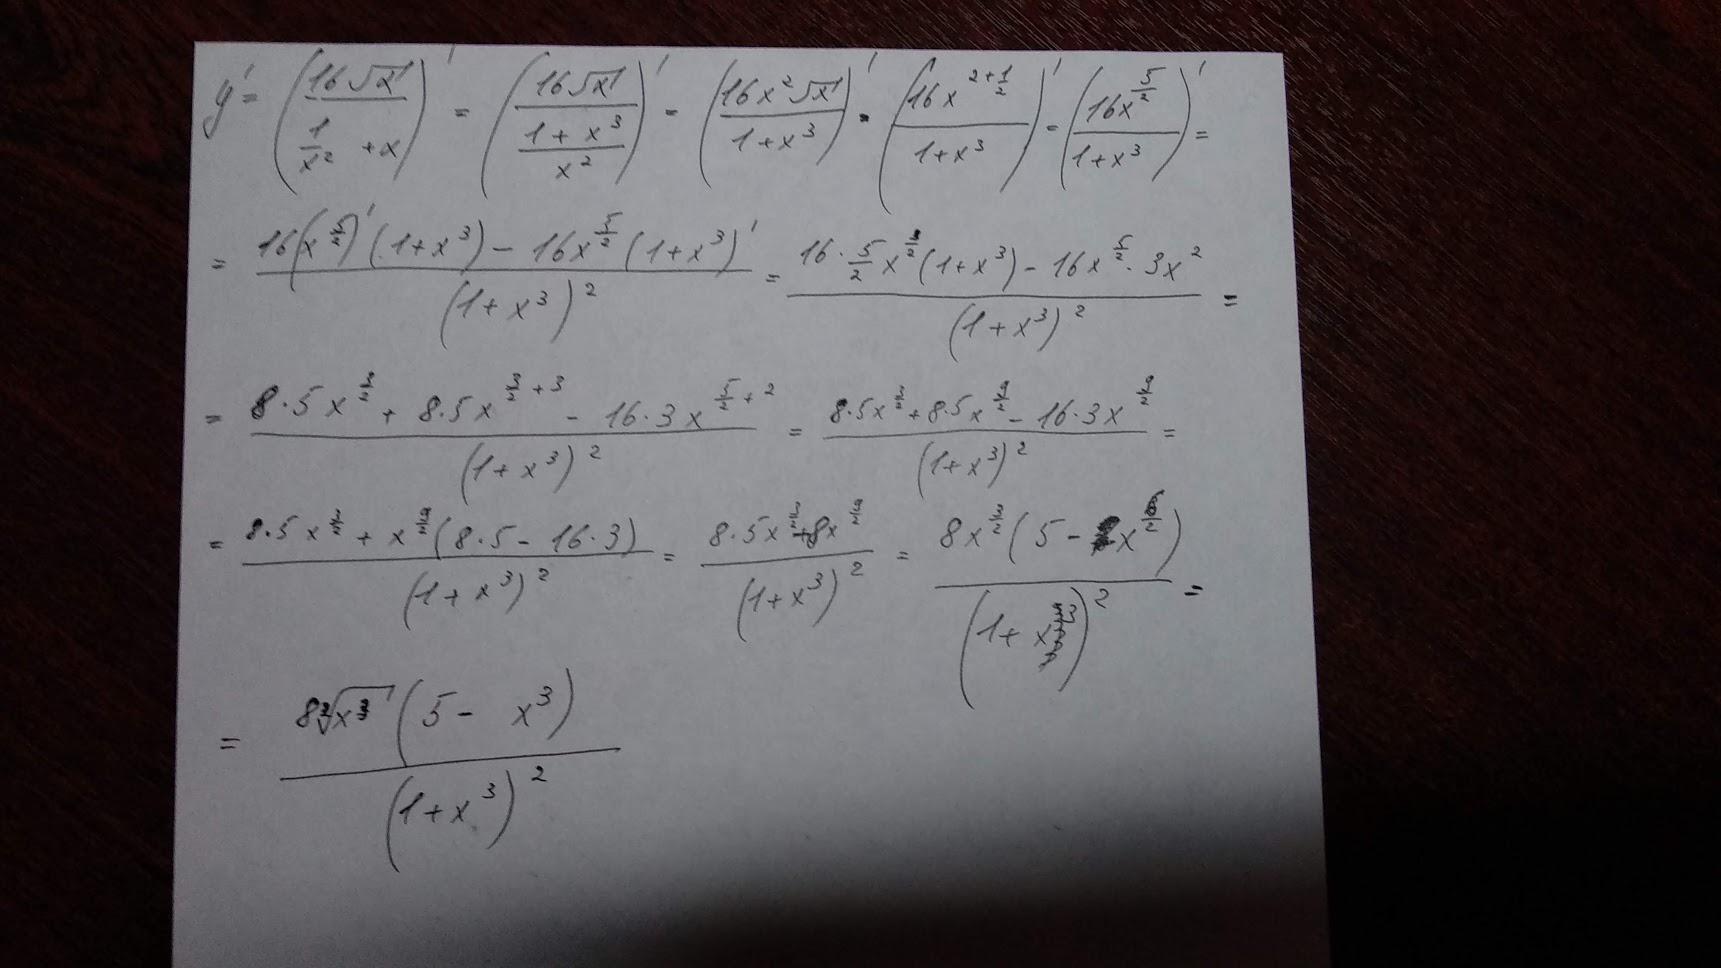 y' = (16√x / (1/x² + x))' = (16√x / ((1 + x³)/x²))' = (16x²√x / (1+x³))' = (16x^(2+1/2) / (1+x³))' = (16x^(5/2) / (1+x³))' =
= (16(x^(5/2))'(1+x³) − 16x^(5/2)(1+x³)') / (1+x³)² = (16·5/2 x^(3/2)(1+x³) − 16x^(5/2)·3x²) / (1+x³)² =
= (8·5x^(3/2) + 8·5x^(3/2+3) − 16·3x^(5/2+2)) / (1+x³)² = (8·5x^(3/2) + 8·5x^(9/2) − 16·3x^(9/2)) / (1+x³)² =
= (8·5x^(3/2) + x^(9/2)(8·5 − 16·3)) / (1+x³)² = (8·5x^(3/2) + 8x^(9/2)) / (1+x³)² = 8x^(3/2)(5 − x^(6/2)) / (1+x³)² =
= 8√x³ (5 − x³) / (1+x³)²